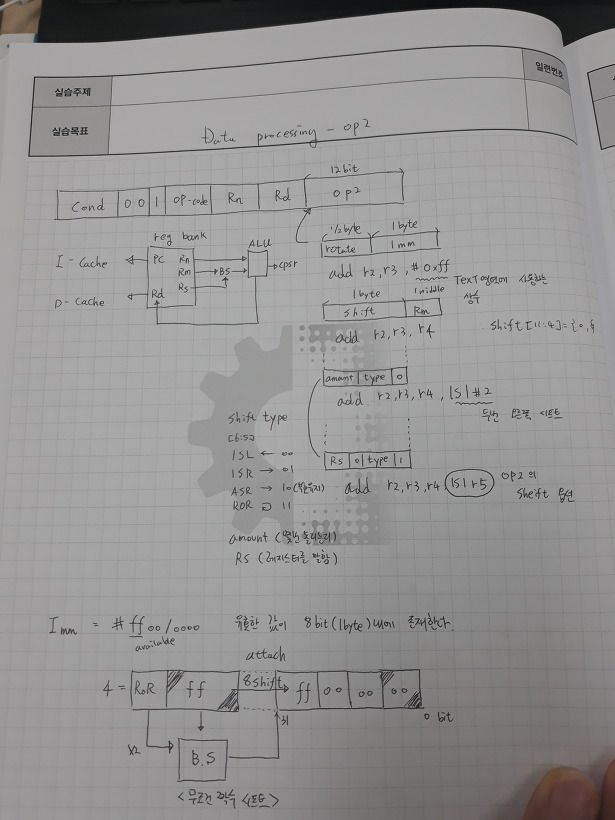 실습주제
일련번호
실습목표
Data processing - op2
12bit
Cond 0 0 1 OP-code Rn Rd op2
reg bank
ALU
1/2byte 1byte
rotate Imm
I-Cache PC Rn
Rm BS cpsr
Rs
D-Cache Rd
add r2, r3, #0xff
TEXT영역에 사용하는
상수
1byte 1nibble
shift Rm
add r2, r3, r4
shift[11:4]=
amount type 0
add r2, r3, r4, lsl #2
두번 왼쪽 시프트
shift type
[6:5]
LSL ← 00
LSR → 01
ASR → 10
ROR 11
Rs 0 type 1
add r2, r3, r4, lsl r5
OP2의
Sheift 옵션
amount (몇번 돌리는지)
RS (레지스터를 말함)
Imm = # ff00/0000 유효한 값이 8bit(1byte)내에 존재한다.
available
attach
4 = RoR ff 8shift ff 00 00 00
31
0 bit
x2
B.S
<무조건 짝수 시프트>